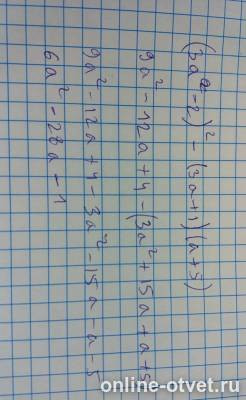 (3a-2)² - (3a+1)(a+5)
9a² - 12a + 4 - (3a² + 15a + a + 5
9a² - 12a + 4 - 3a² - 15a - a - 5
6a² - 28a - 1
online-otvet.ru